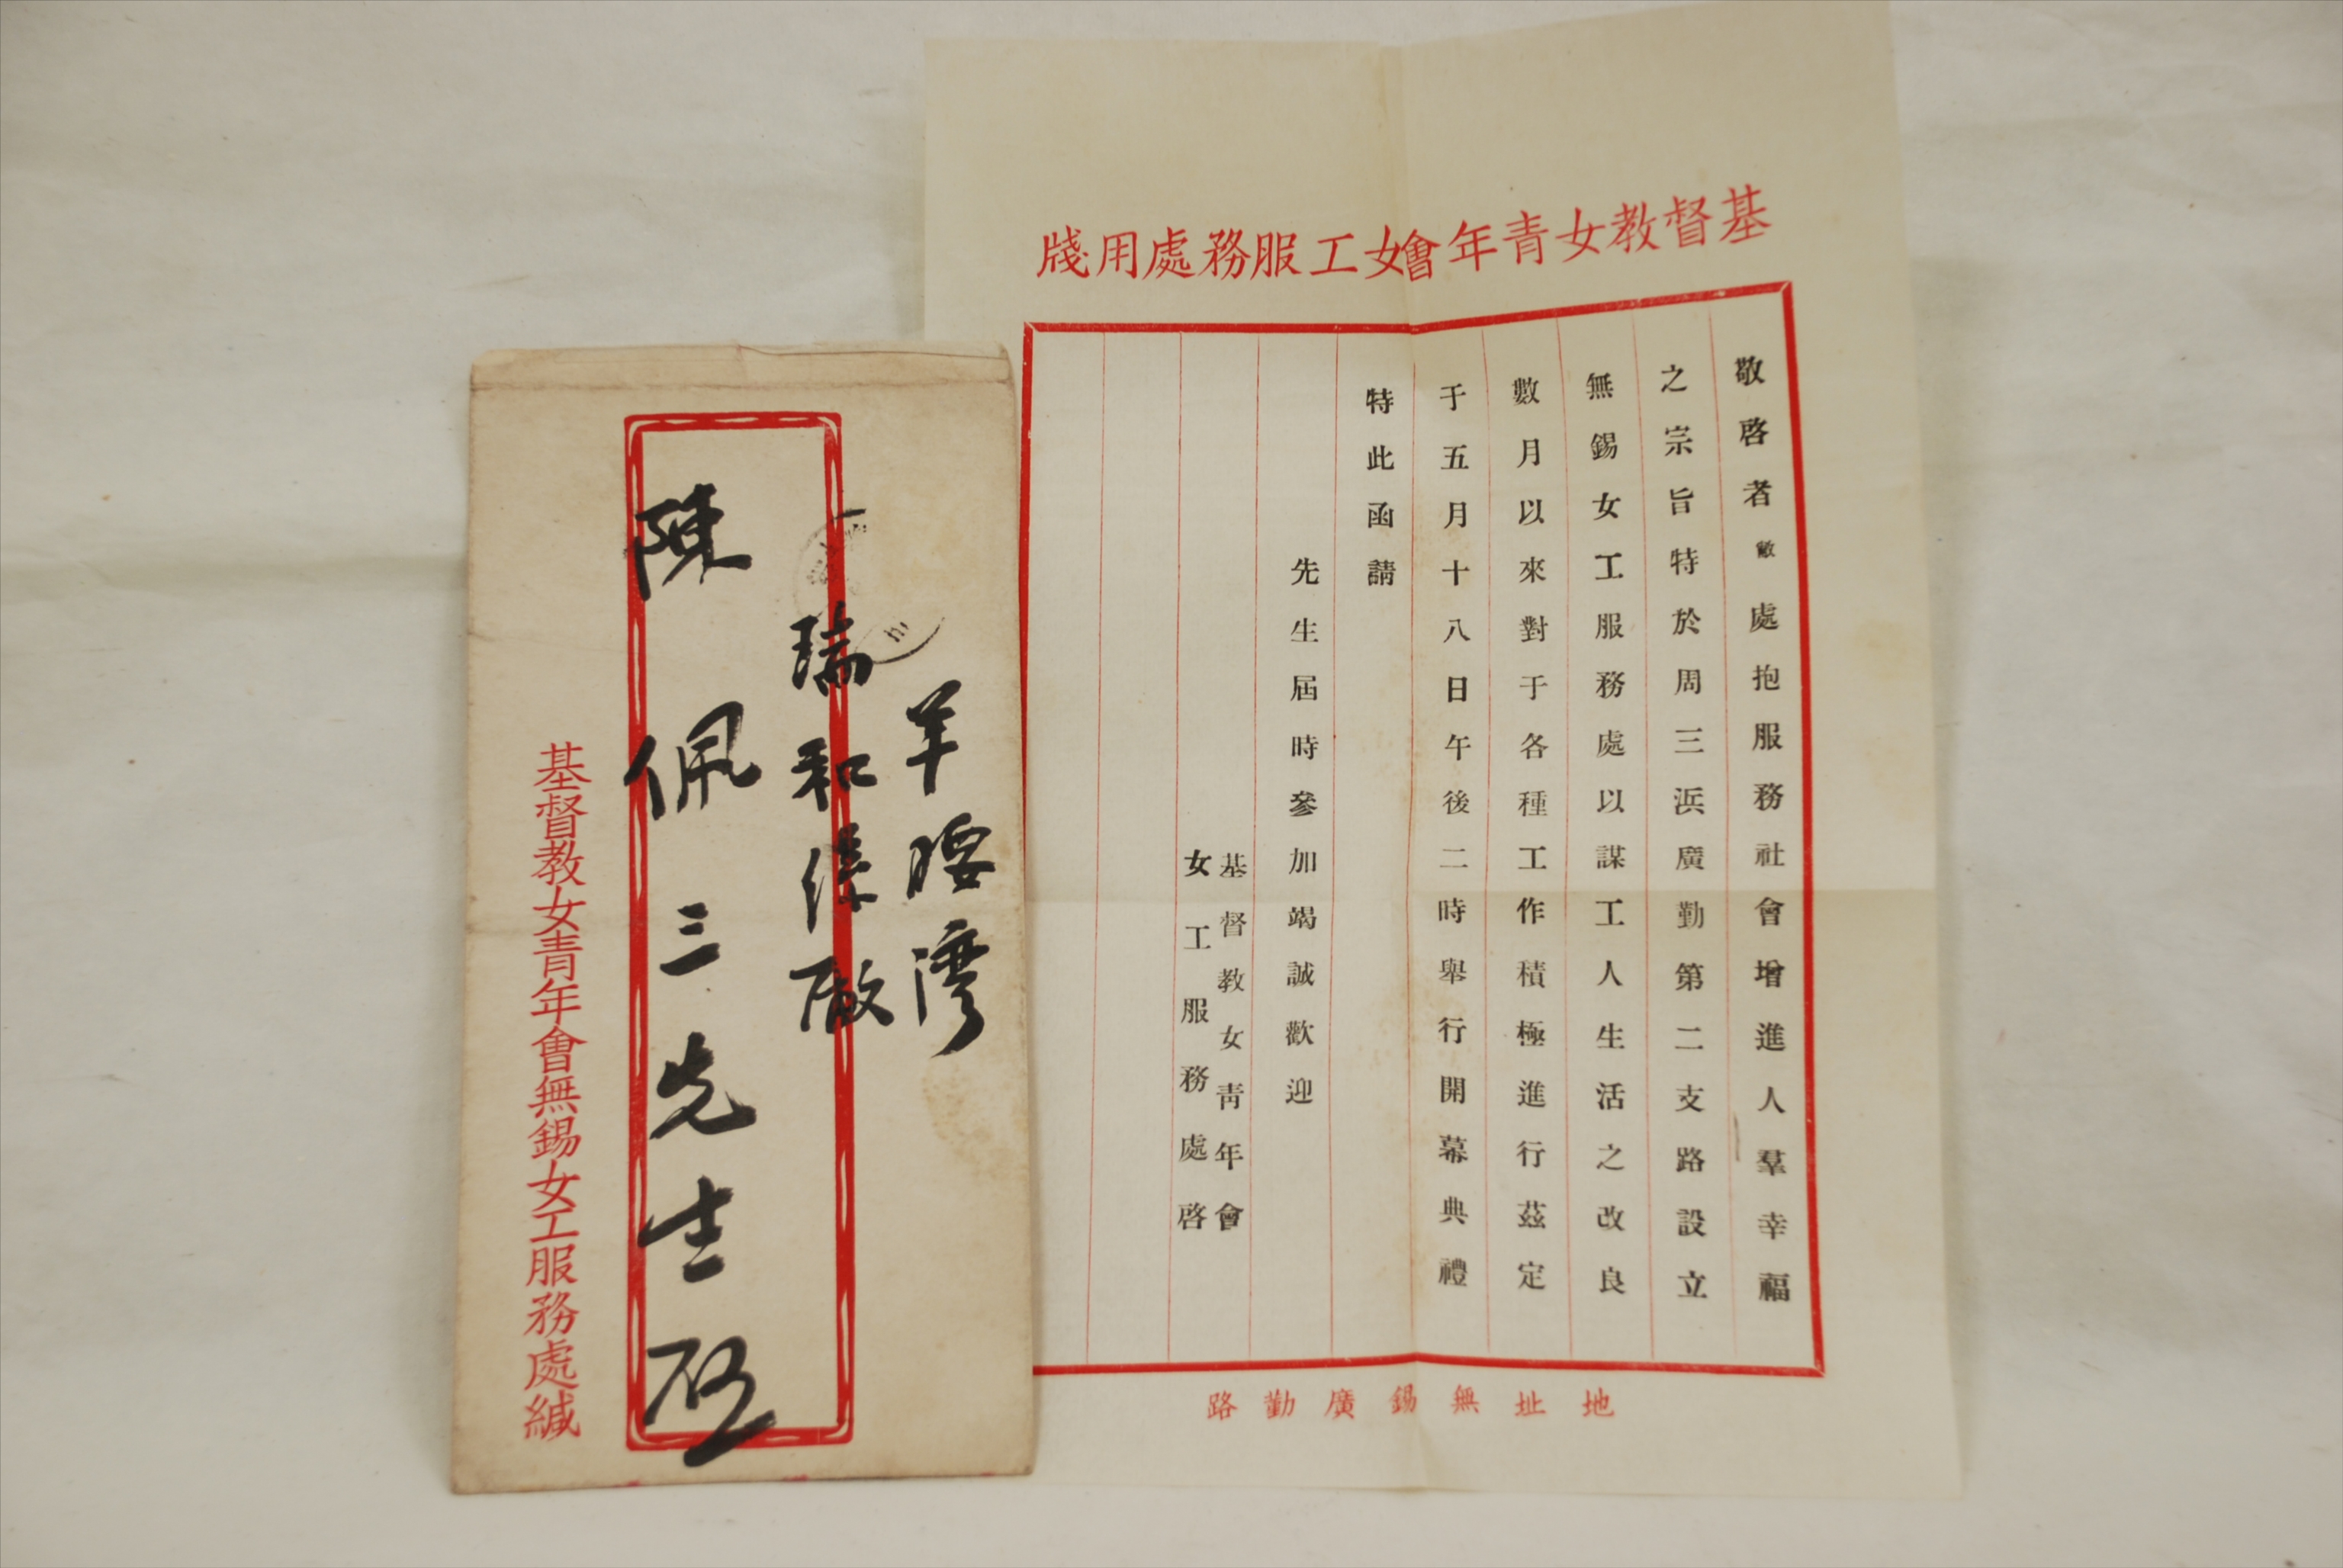 羊腰灣
瑞和絲廠
陳佩三先生啟
基督教女青年會無錫女工服務處緘
基督教女青年會女工服務處用牋
敬啓者敝處抱服務社會增進人羣幸福
之宗旨特於周三浜廣勤第二支路設立
無錫女工服務處以謀工人生活之改良
數月以來對于各種工作積極進行茲定
于五月十八日午後二時舉行開幕典禮
特此函請
先生屆時參加竭誠歡迎
基督教女青年會
女工服務處啓
地址無錫廣勤路